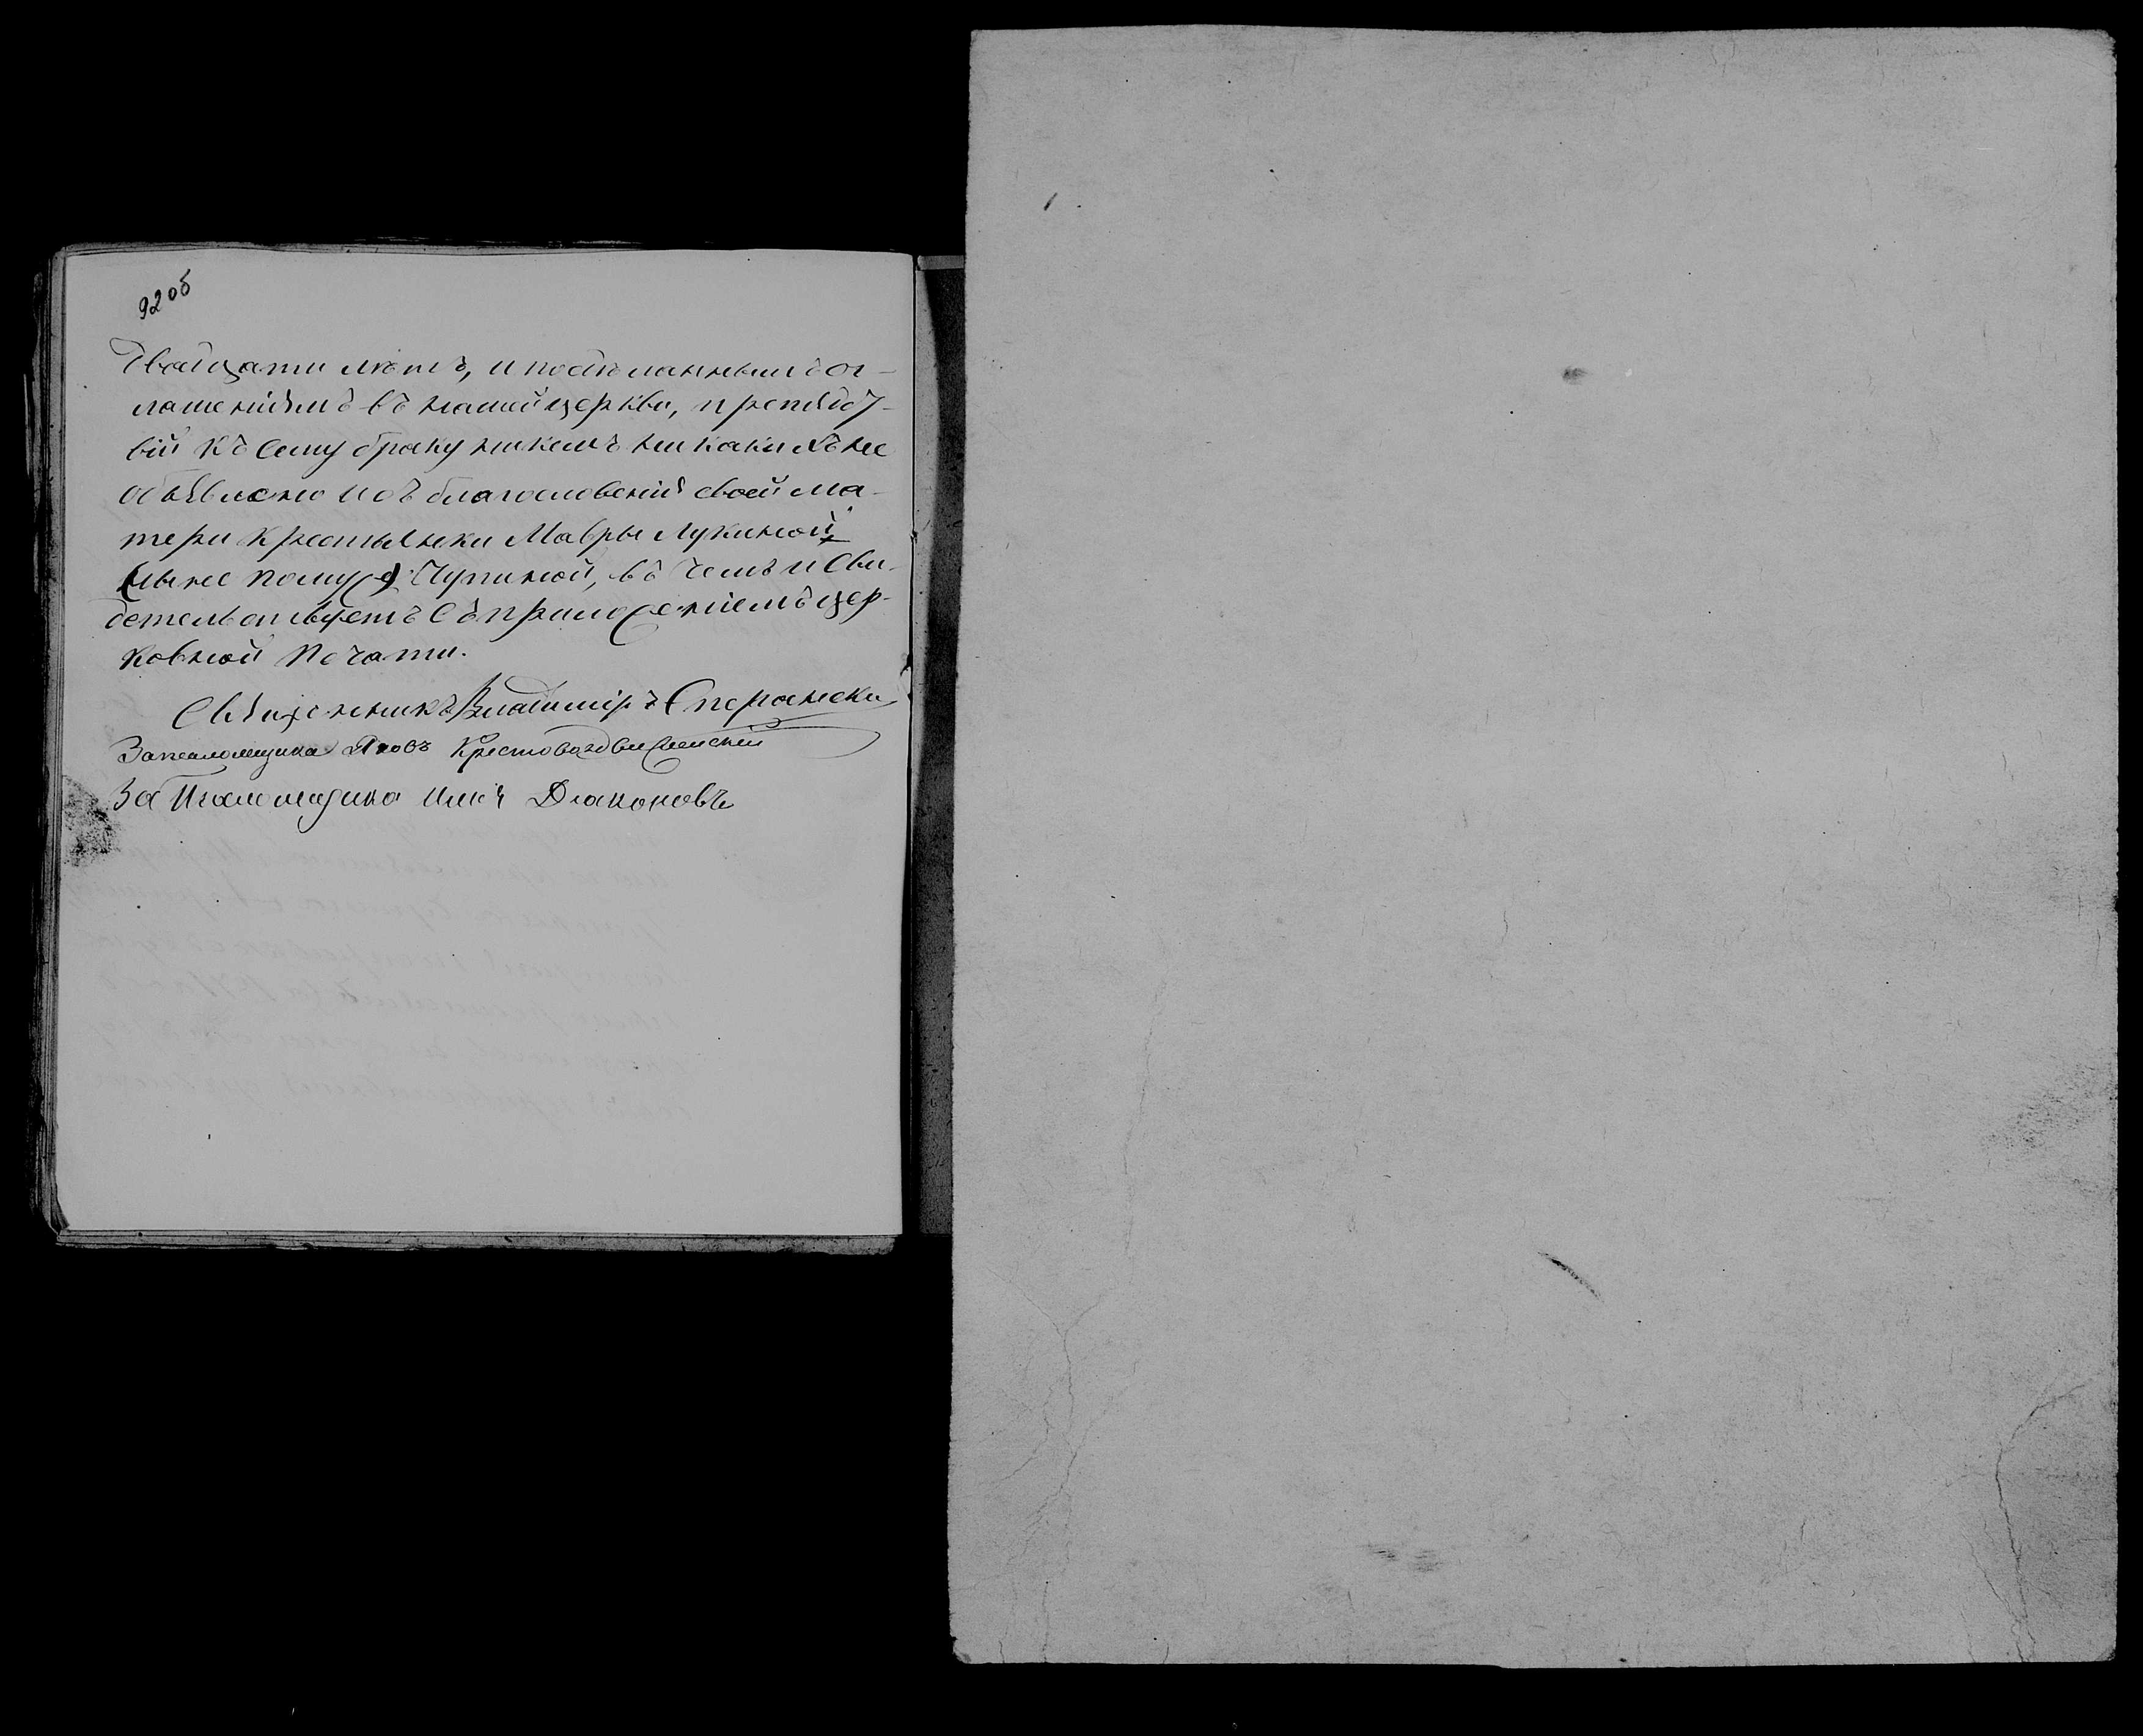 92об
двадцати лѣтъ, и по сдѣланнымъ ог-
лашеніямъ въ нашей церкви, препятст-
вій къ сему браку никемъ никакихъ не
объявлено и съ благословенія своей ма-
тери крестьянки Мавры Лукиной,
(ныне по мужѣ) Чупиной, въ чемъ и сви-
детельствуетъ съ приложеніемъ цер-
ковной печати.
Священникъ Владиміръ Сперански
За псаломщика Яковъ Крестовоздвиженскій
За Псаломщика Илія Діаконовъ